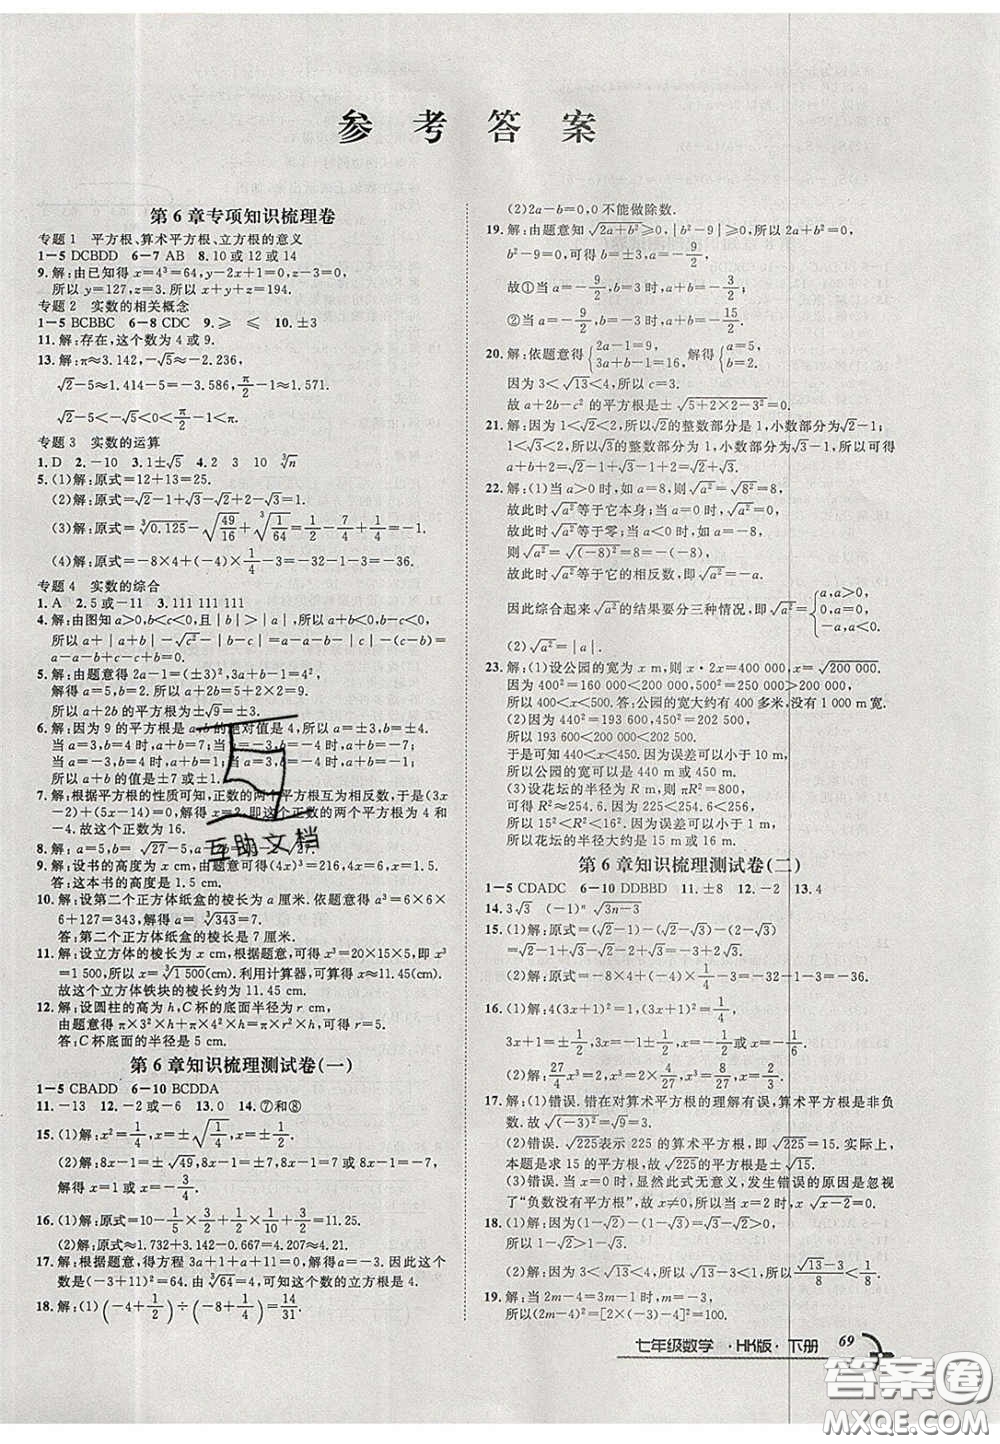 参考答案
第6章专项知识梳理卷
专题1 平方根、算术平方根、立方根的意义
1－5 DCBDD 6－7 AB 8.10或12或14
9.解:由已知得x=4³=64,y-2x+1=0,z-3=0.
所以y=127,z=3.所以x+y+z=194.
专题2 实数的相关概念
1－5 BCBBC 6－8 CDC 9.⩾ ⩽ 10.±3
11.解:存在,这个数为4或9.
13.解:π≈3.142,-√5≈-2.236,
√2-5≈1.414-5=-3.586,π/2-1≈1.571.
√2-5<-√5<0<π/2-1<π.
专题3 实数的运算
1.D 2.-10 3.1±√5 4.2 3 10 ³√n
5.(1)解:原式=12+13=25.
(2)解:原式=√2-1+√3-√2+2-√3=1.
(3)解:原式=³√0.125-√(49/16)+³√(1/64)=1/2-7/4+1/4=-1.
(4)解:原式=-8×4+(-4)×1/4-3=-32-1-3=-36.
专题4 实数的综合
1.A 2.5或-11 3.111 111 111
4.解:由图知a>0,b<c<0,且|b|>|a|,所以a+b<0,
所以a+|a+b|-√c²-|b-c|=a-a-b-|c|-(c-b)=
a-a-b+c-c+b=0.
5.解:由题意得2a-1=(±3)²,3a+b-1=4²,
解得a=5,b=2.所以a+2b=5+2×2=9.
所以a+2b的平方根为±√9=±3.
当a=3,b=4时,a+b=7;当a=3,b=-4时,a+b=-1;
当a=-3,b=4时,a+b=1;当a=-3,b=-4时,a+b=-7.
所以a+b的值是±7或±1.
7.解:根据平方根的性质可知,正数的两个平方根互为相反数,于是(3x
-4.故这个正数为16.
9.解:设书的高度为x cm,由题意可得(4x)³=216,4x=6,x=1.5.
答:这本书的高度是1.5 cm.
10.解:设第二个正方体纸盒的棱长为a厘米.依题意得a³=6×6×
6+127=343,解得a=³√343=7.
答:第二个正方体纸盒的棱长是7厘米.
11.解:设立方体的棱长为x cm,根据题意,可得x³=20×15×5,即
x³=1 500,所以x=³√1 500(cm).利用计算器,可得x≈11.45(cm).
故这个立方体铁块的棱长约为11.45 cm.
12.解:设圆柱的高为h,C杯的底面半径为r cm,
由题意得π×3²×h+π×4²×h=π×r²×h,可得r=5.
答:C杯底面的半径是5 cm.
第6章知识梳理测试卷(一)
1－5 CBADD 6－10 BCDDA
11.-13 12.-2或-6 13.0 14.⑦和⑧
15.(1)解:4x²=1,x²=1/4,x=±√(1/4),x=±1/2.
(2)解:8x-1=±√49,8x-1=±7,8x-1=7或8x-1=-7,
解得x=1或x=-3/4.
16.(1)解:原式=10-1/5×3/2+1/2×1/10+3/2=11.25.
(2)解:原式≈1.732+3.142-0.667=4.207≈4.21.
17.解:根据题意,得方程3a+1+a+11=0,解得a=-3.因此这个
数是(-3+11)²=64.由³√64=4,可知这个数的立方根是4.
18.解:(1)(-4+1/2)÷(-8+1/4)=14/31.
(2)2a-b=0,0不能做除数.
19.解:由题意知√(2a+b²)⩾0,|b²-9|⩾0,所以2a+b²=0,
b²-9=0,可得b=±3,a=-9/2,
故①当a=-9/2,b=3时,a+b=-3/2;
②当a=-9/2,b=-3时,a+b=-15/2.
20.解:依题意得{2a-1=9, 3a+b-1=16. 解得{a=5, b=2.
因为3<√13<4,所以c=3.
故a+2b-c²的平方根是±√(5+2×2-3²)=0.
21.解:因为1<√2<2,所以√2的整数部分为1,小数部分为√2-1.因为
1<√3<2,所以√3的整数部分为1,小数部分为√3-1,所以可得
a+b+2=√2-1+√3-1+2=√2+√3.
22.解:(1)当a>0时,如a=8,则√a²=√8²=8.
故此时√a²等于它本身;当a=0时,√a²=0.
故此时√a²等于零;当a<0时,如a=-8,
则√a²=√(-8)²=-(-8)=8.
故此时√a²等于它的相反数,即√a²=-a.
因此综合起来√a²的结果要分三种情况,即√a²={a,a>0, 0,a=0, -a,a<0.
(2)√a²=|a|.
23.解:(1)设公园的宽为x m,则x·2x=400 000,x=√200 000.
因为400²=160 000<200 000,500²=250 000>200 000,
所以400<x<500.公园的宽大约有400多米,没有1 000 m宽.
(2)因为440²=193 600,450²=202 500,
所以193 600<200 000<202 500.
于是可知440<x<450.因为误差可以小于10 m,
所以公园的宽可以是440 m或450 m.
(3)设花坛的半径为R m,则πR²=800,
可得R²≈254.6.因为225<254.6<256,
所以15²<R²<16².因为误差可以小于1 m,
所以花坛的半径大约是15 m或16 m.
第6章知识梳理测试卷(二)
1－5 CDADC 6－10 DDBBD 11.±8 12.-2 13.4
14.3√3 (-1)ⁿ√(3n-3)
15.(1)解:原式=(√3-√2)-(√2-√3)-(2-√3)
=√3-√2-√2+√3-2+√3=3√3-2√2-2.
(2)解:原式=-8×4+(-4)×1/4-3=-32-1-3=-36.
16.(1)解:4(3x+1)²=1,(3x+1)²=1/4,3x+1=±√(1/4),
(2)解:27/4x³=-2,x³=-2×4/27,x³=-8/27,x=-2/3.
17.解:(1)错误.错在对算术平方根的理解有误,算术平方根是非负
数.故√(-3)²=√9=3.
(2)错误.√225表示225的算术平方根,即√225=15.实际上,
本题是求15的平方根,故√225的平方根是±√15.
(3)错误.当x=0时,此式无意义,发生错误的原因是忽视
了“负数没有平方根”,故x≠0,所以当x=2时,x√(x-2)=0.
18.解:(1)因为(1-√2)-(1-√3)=√3-√2>0,
所以1-√2>1-√3.
(2)解:因为√13<4,所以√13-3<1,所以(√13-3)/8<1/8.
19.解:当2m-4=3m-1时,m=-3,
所以(2m-4)²=[2×(-3)-4]²=100.
七年级数学·HK版·下册 69
互助文档
答案圈
MXQE.COM